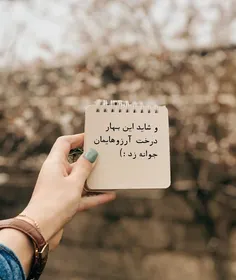 و شاید این بهار
درخت آرزوهایمان
جوانه زد :)